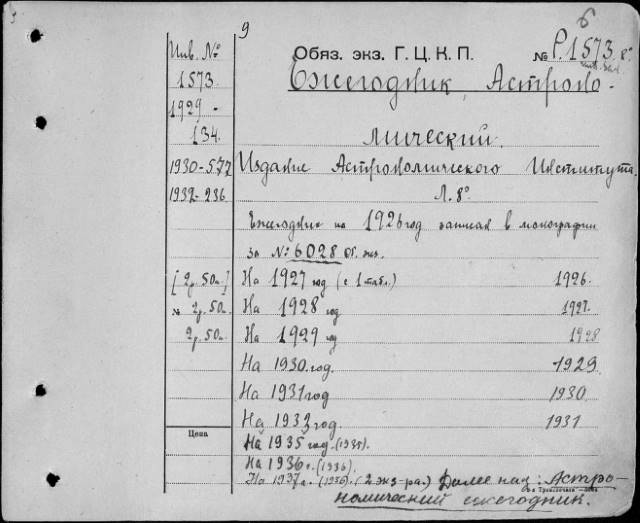 6
9
Инв. №
1573
1929 -
134.
1930-577
1932-236
Обяз. экз. Г. Ц. К. П. № Р.1573 8°
Ежегодник, Астроно-
мический.
Издание Астрономического Института.
Л. 8°
Ежегодник на 1926 год записан в монографии
за № 6028 Об. экз.
[2р. 50к.] На 1927 год (с 1 табл.) 1926.
№ 2р. 50к. На 1928 год 1927.
2р. 50к. На 1929 год 1928
На 1930 год. 1929
На 1931 год 1930
На 1933 год. 1931
Цена
На 1935 год. (1935).
На 1936 г. (1936)
На 1937 г. (1936). (2 экз-ра.) Далееназ: Астро-
номический ежегодник.